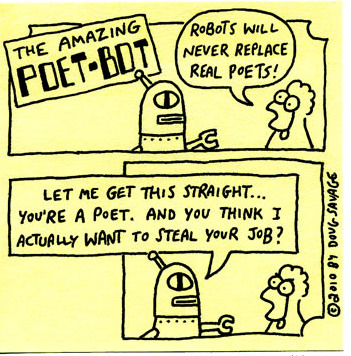 THE AMAZING
POET-BOT
ROBOTS WILL
NEVER REPLACE
REAL POETS!
LET ME GET THIS STRAIGHT...
YOU'RE A POET. AND YOU THINK I
ACTUALLY WANT TO STEAL YOUR JOB?
©2010 BY DOUG SAVAGE